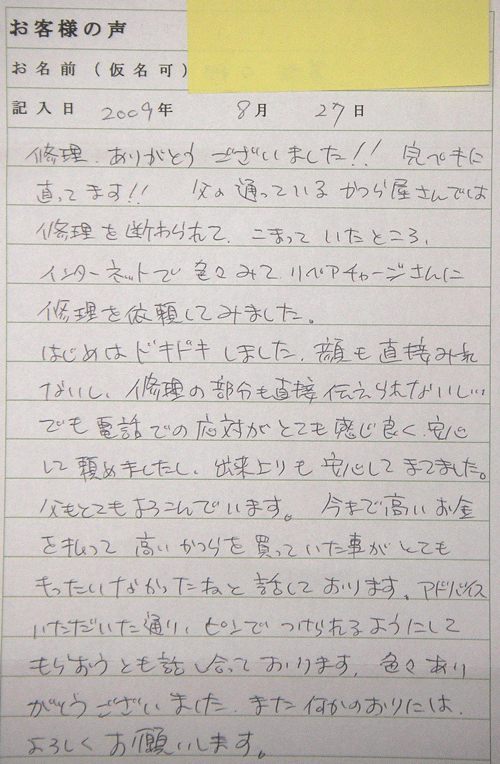 お客様の声
お名前（仮名可）
記入日 2009年 8月 27日
修理、ありがとうございました!! 完ペキに
直ってます!! 父の通っているかつら屋さんでは
修理を断わられて、こまっていたところ、
インターネットで色々みてリペアチャージさんに
修理を依頼してみました。
はじめはドキドキしました、顔も直接みれ
ないし、修理の部分も直接伝えられないし…
でも電話での応対がとても感じ良く、安心
して頼めましたし、出来上りも安心してまてました。
父もとてもよろこんでいます。今まで高いお金
を払って高いかつらを買っていた事がとても
もったいなかったねと話しております。アドバイス
いただいた通り、ピンでつけられるようにして
もらおうとも話し合っております。色々あり
がとうございました。また何かのおりには、
よろしくお願いします。